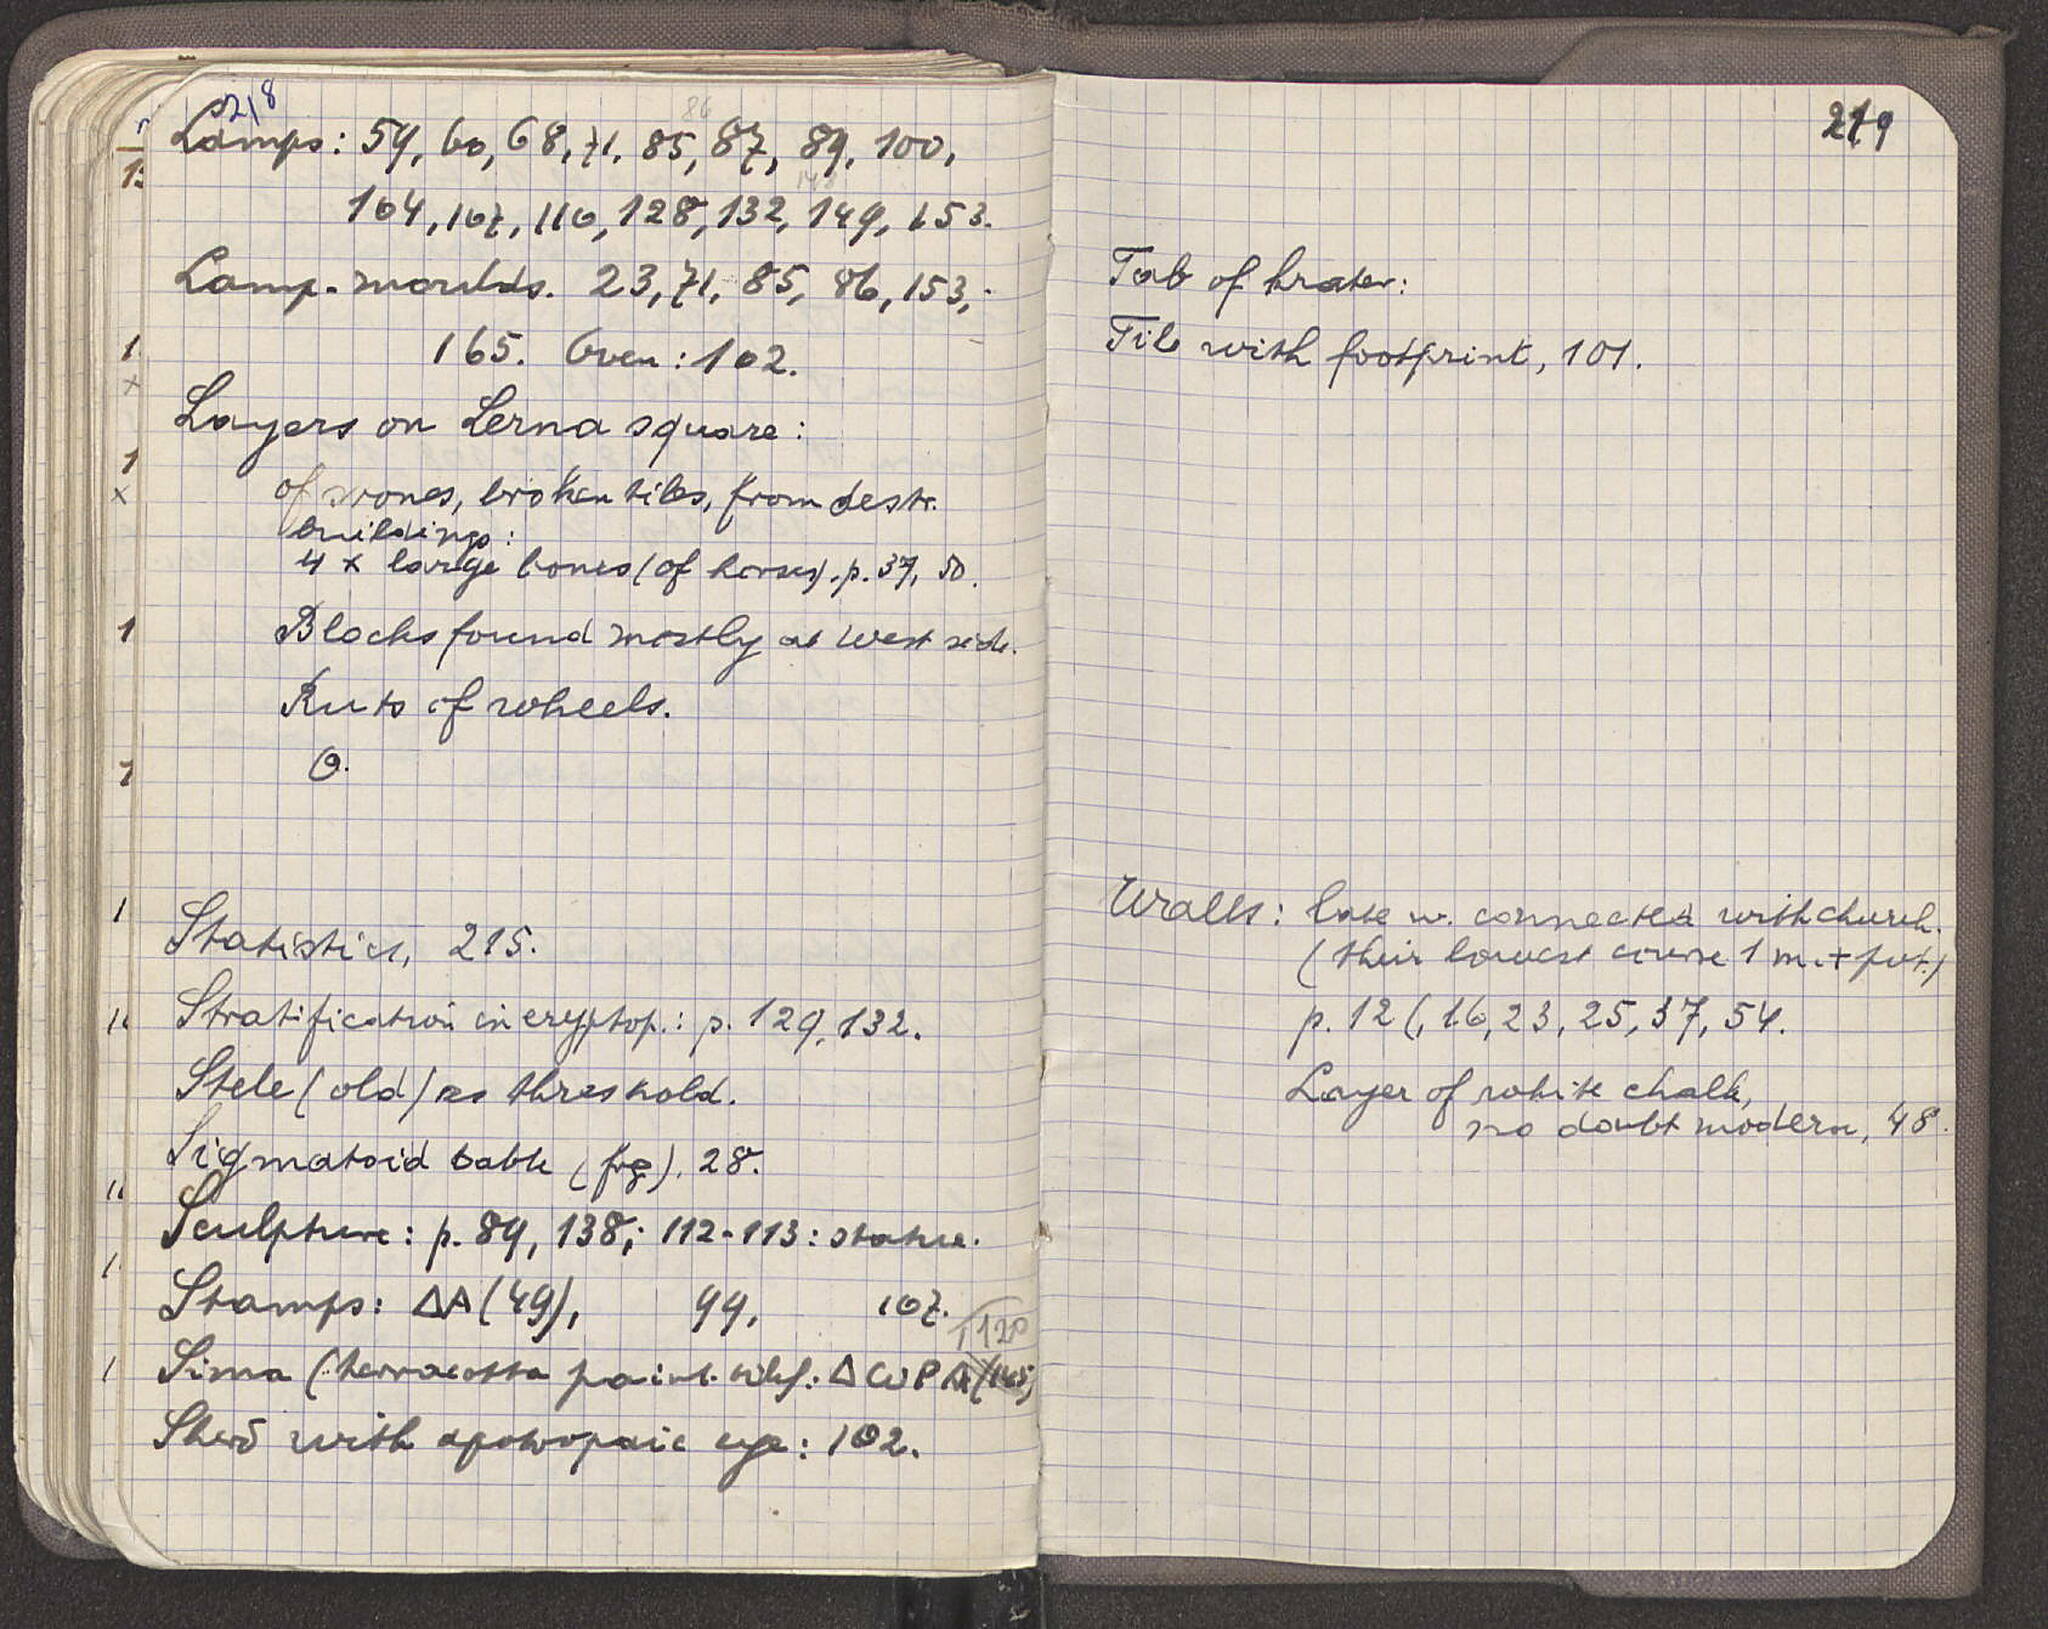 218
Lamps: 59, 60, 68, 71, 85, 87, 89, 100,
104, 107, 110, 128, 132, 149, 153.
Lamp-moulds. 23, 71, 85, 86, 153,
165. Oven: 102.
Layers on Lerna square:
of stones, broken tiles, from destr.
buildings:
4 x large bones (of horses). p. 37, 50.
Blocks found mostly at West side.
Ruts of wheels.
Θ.
Statistics, 215.
Stratification in cryptop.: p. 129, 132.
Stele (old) as threshold.
Sigmatoid table (frg). 28.
Sculpture: p. 89, 138; 112-113: statue.
Stamps: ΔA (49), 99, 107.
120
Sima (terracotta paint. : Δ ω P
Sherd with apotropaic eye: 102.
219
Tab of krater:
Tile with footprint, 101.
Walls: late w. connected with church.
(their lowest course 1 m. +
p. 12 (, 16, 23, 25, 37, 54.
Layer of white chalk,
no doubt modern, 48.